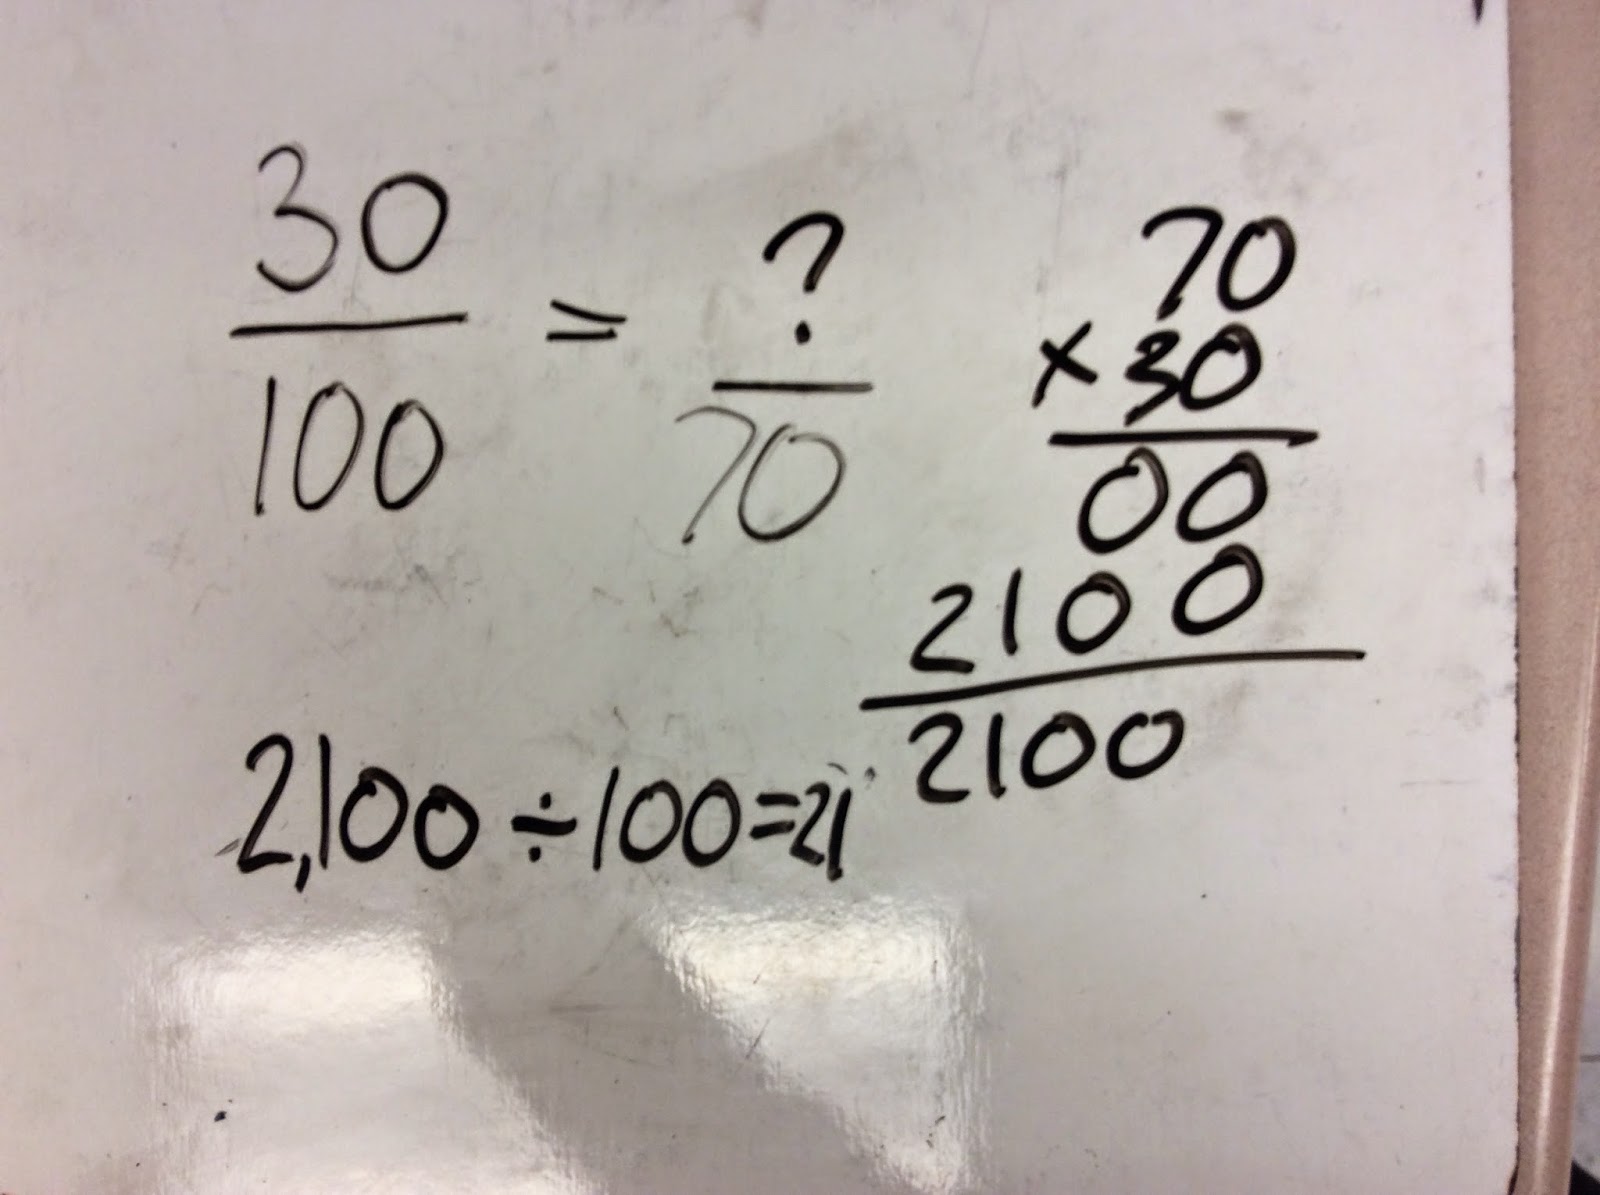 30/100 = ?/70
70
× 30
00
2100
2100
2,100 ÷ 100 = 21